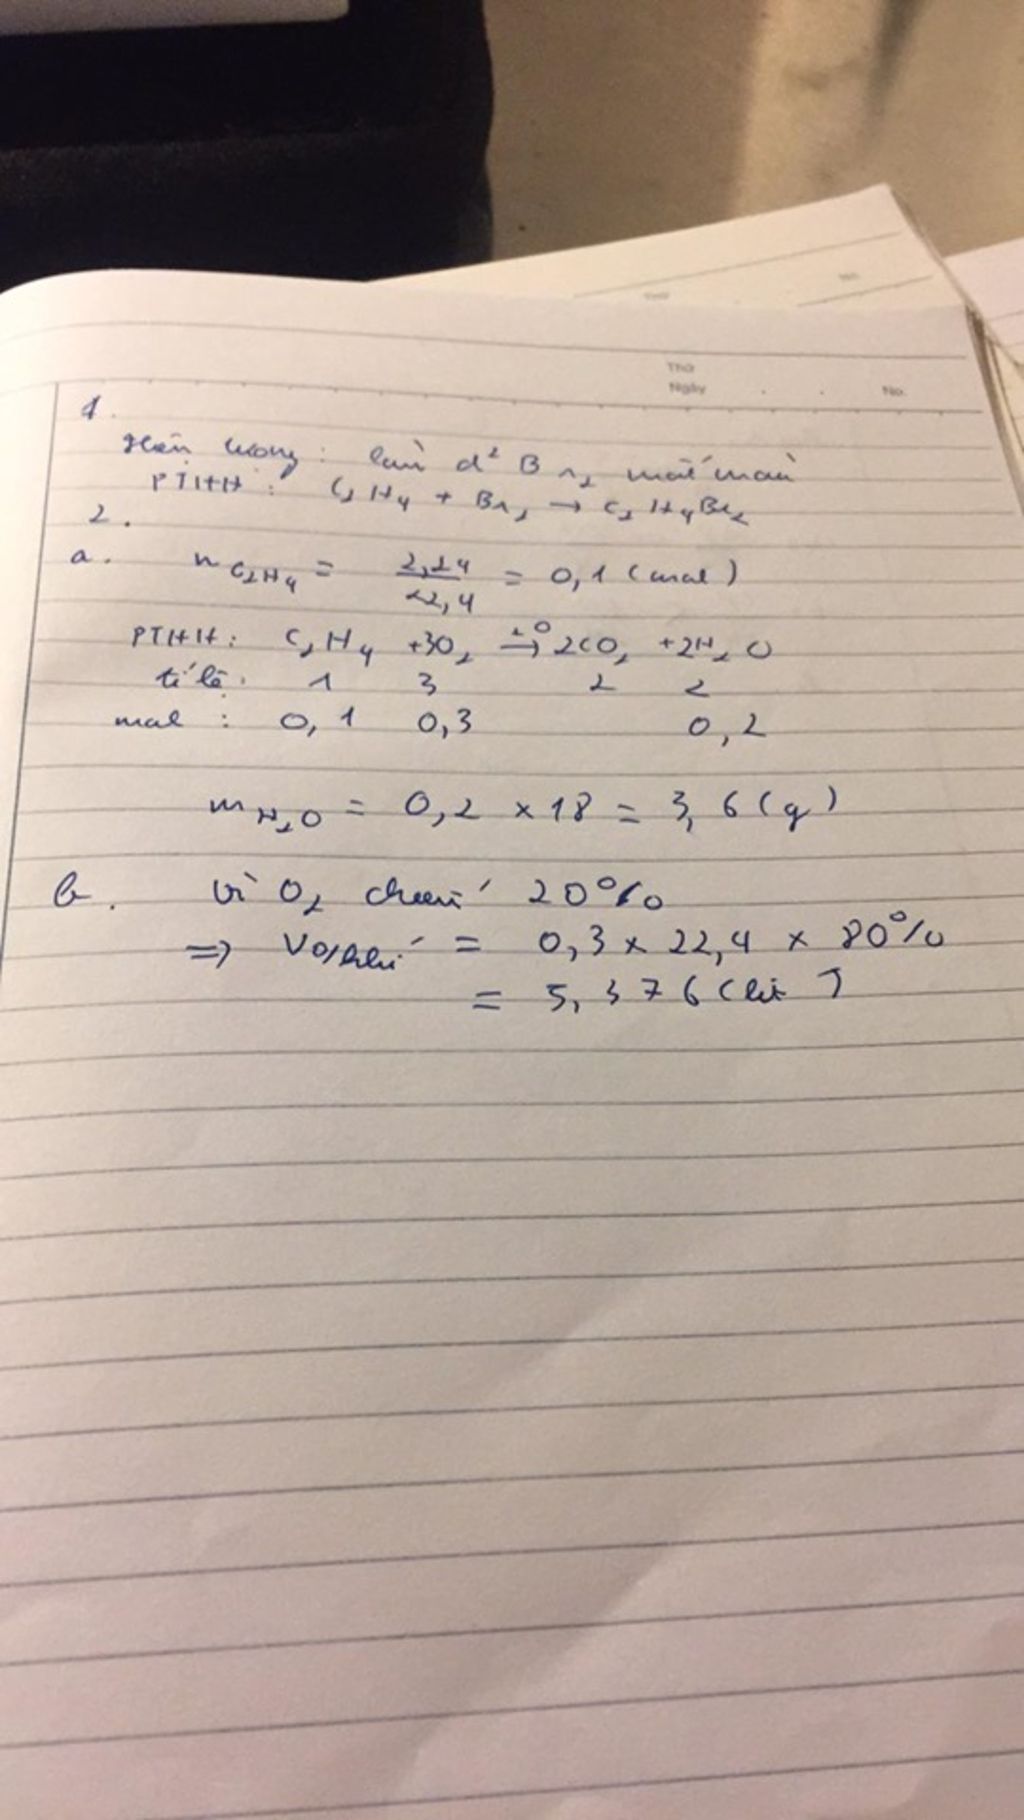 Thứ
Ngày No.
1.
Hiện tượng : làm d² Br₂ mất màu
PTHH : C₂H₄ + Br₂ → C₂H₄Br₂
2.
a. n C₂H₄ = 2,24/22,4 = 0,1 (mol)
PTHH : C₂H₄ +3O₂ →t⁰ 2CO₂ +2H₂O
tỉ lệ : 1 3 2 2
mol : 0,1 0,3 0,2
m H₂O = 0,2 × 18 = 3,6 (g)
b. Vì O₂ chiếm 20%
=> V0/khí = 0,3 × 22,4 × 80%
= 5,376 (lít)